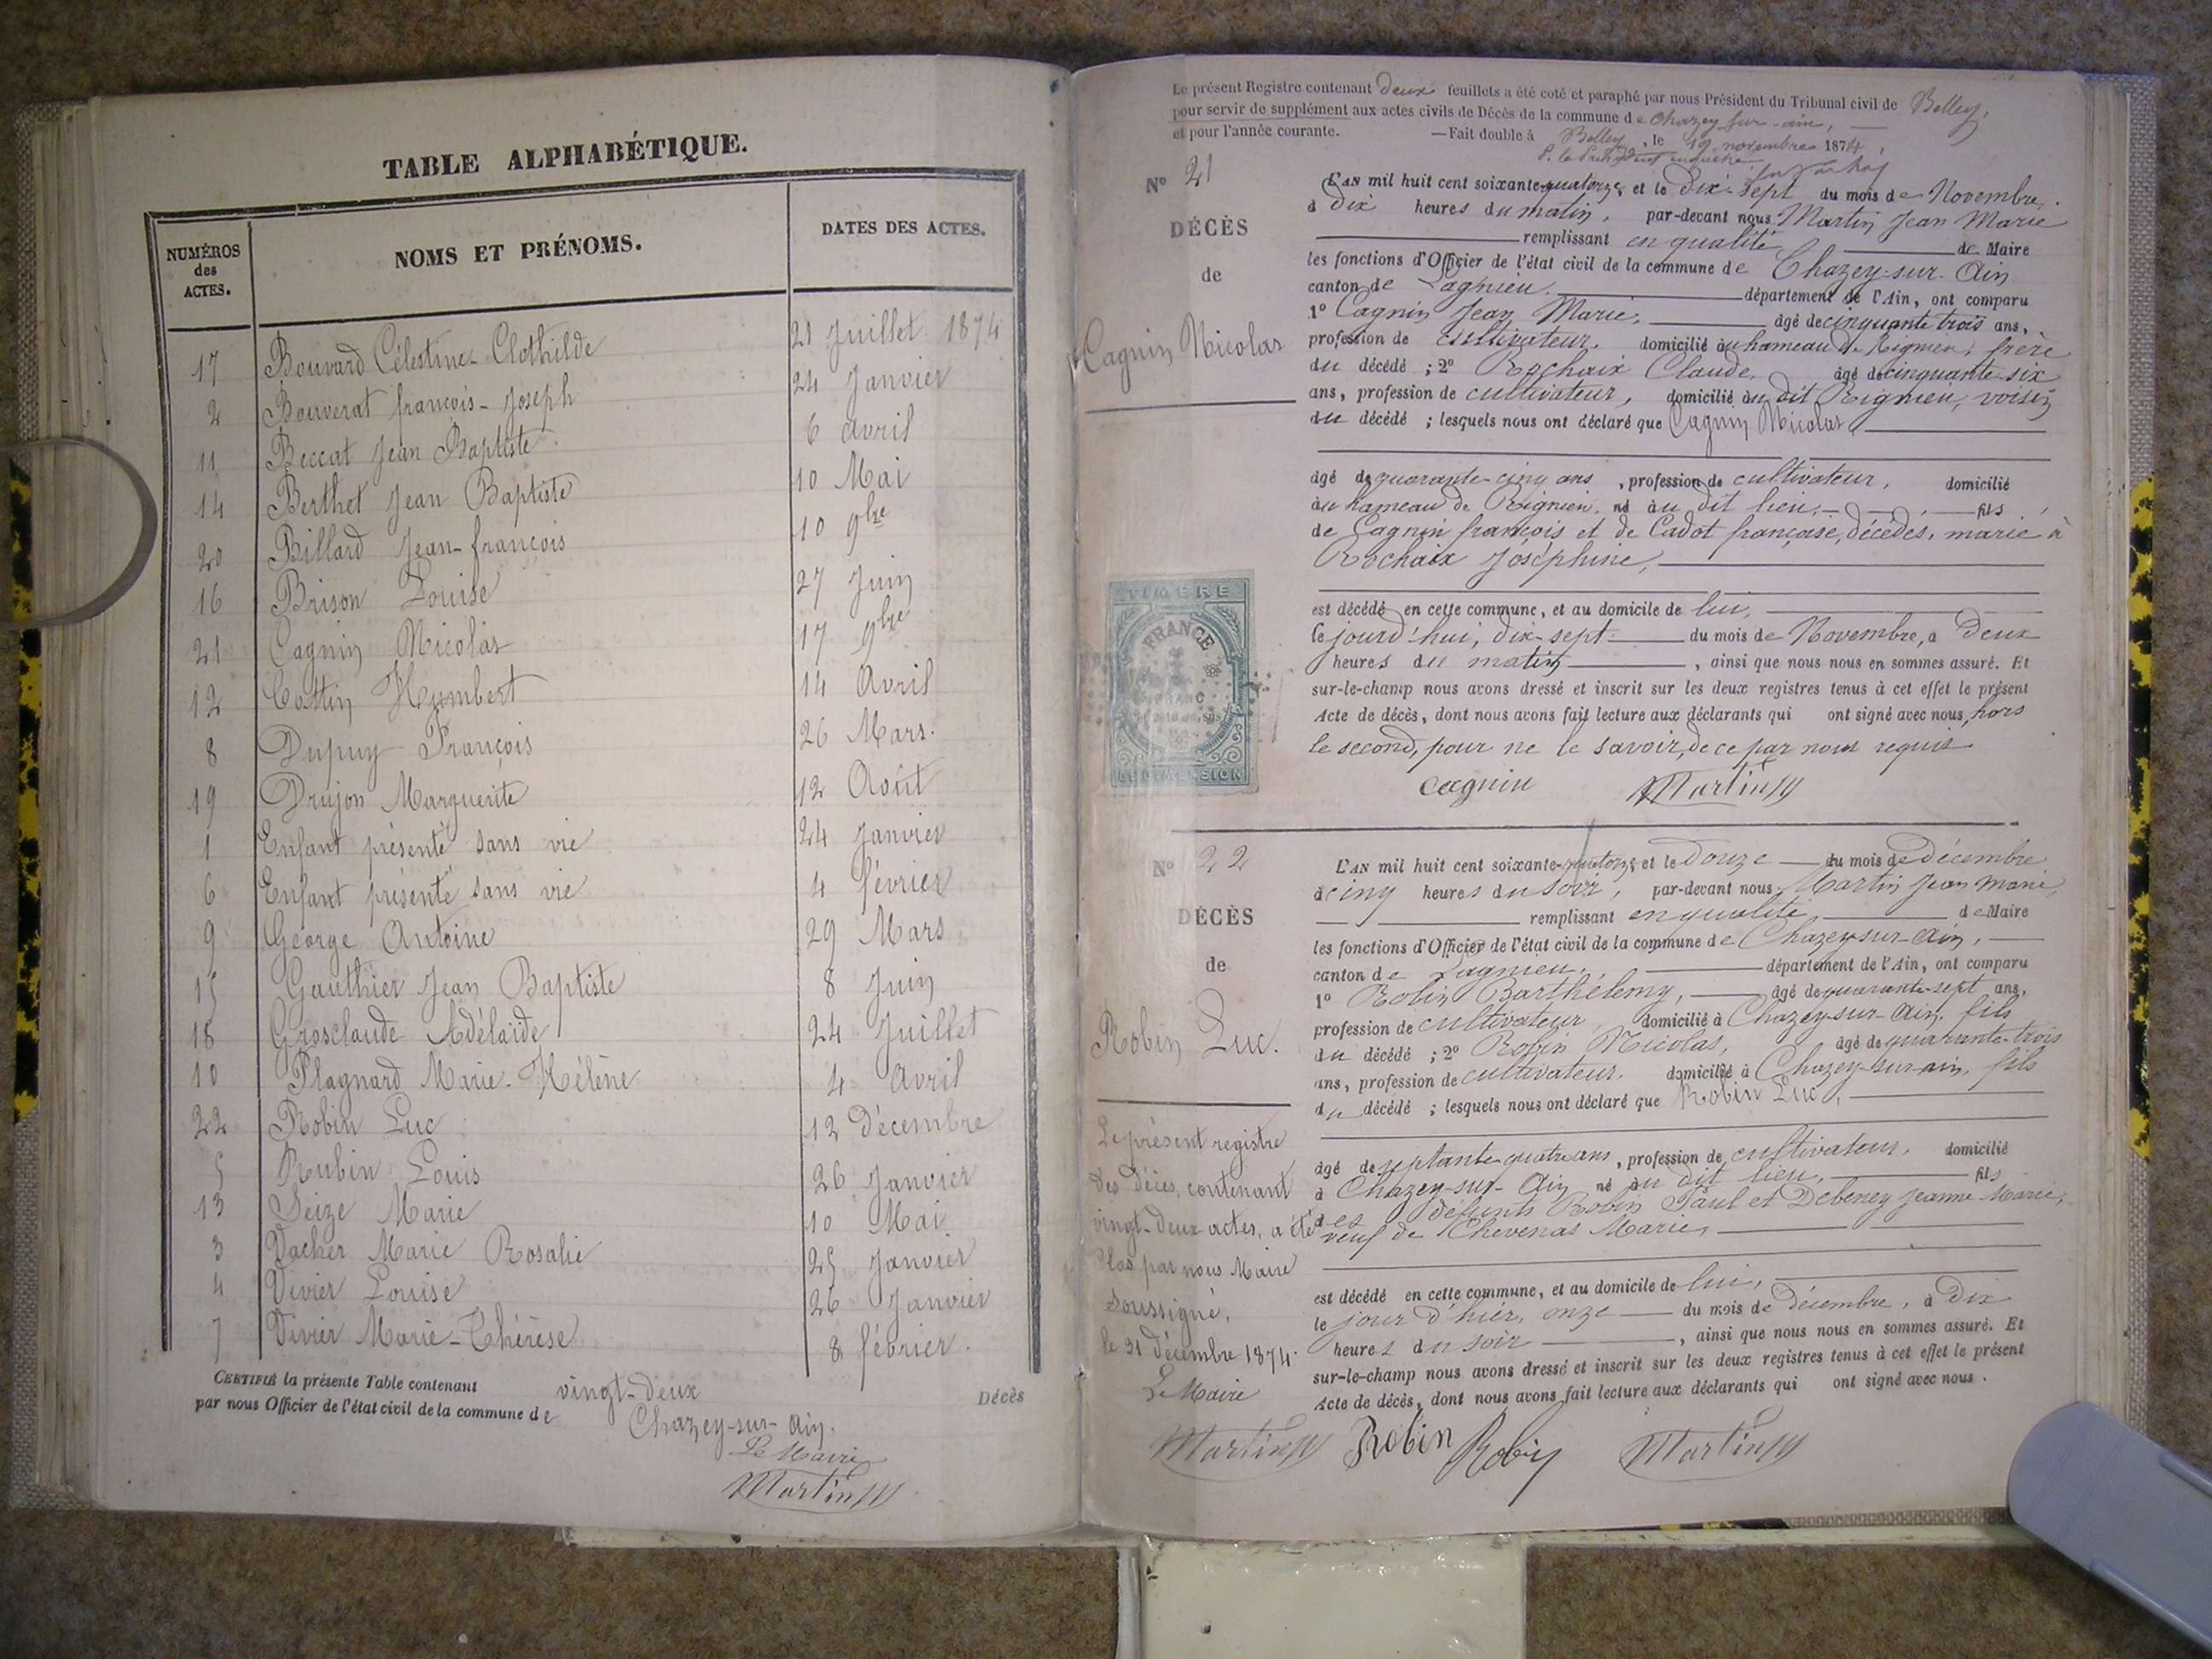 TABLE ALPHABÉTIQUE.
NUMÉROS des ACTES. NOMS ET PRÉNOMS. DATES DES ACTES.
17 Bouvard Célestine-Clothilde 21 Juillet 1874
2 Bouverat françois-Joseph 24 Janvier
11 Beccat Jean Baptiste 6 avril
14 Berthet Jean Baptiste 10 Mai
20 Billard Jean-françois 10 9bre
16 Brison Louise 27 Juin
21 Cagnin Nicolas 17 9bre
12 Cottin Humbert 14 Avril
8 Dupuy François 26 Mars.
19 Drujon Marguerite 12 Août
1 Enfant présenté sans vie 24 Janvier
6 Enfant présenté sans vie 4 février
9 George Antoine 29 Mars
15 Gauthier Jean Baptiste 8 Juin
18 Grosclaude Adélaïde 24 Juillet
10 Plagnard Marie-Hélène 4 avril
22 Robin Luc 12 Décembre
5 Rubin Louis 26 Janvier
13 Seize Marie 10 Mai
3 Vacher Marie Rosalie 25 Janvier
4 Vivier Louise 26 Janvier
7 Vivier Marie-Thérèse 8 février.
CERTIFIÉ la présente Table contenant vingt-deux Décès
par nous Officier de l'état civil de la commune de Chazey-sur-Ain.
Le Maire
Martin
Le présent Registre contenant deux feuillets a été coté et paraphé par nous Président du Tribunal civil de Belley,
pour servir de supplément aux actes civils de Décès de la commune de Chazey-sur-ain,
et pour l'année courante. — Fait double à Belley, le 19 novembre 1874,
N° 21
DÉCÈS
de
Cagnin Nicolas
L'AN mil huit cent soixante-quatorze et le Dix-sept du mois de Novembre,
à dix heures du matin, par-devant nous Martin Jean Marie
remplissant en qualité de Maire
les fonctions d'Officier de l'état civil de la commune de Chazey-sur-Ain
canton de Lagnieu. département de l'Ain, ont comparu
1° Cagnin Jean Marie, âgé de cinquante trois ans,
profession de cultivateur, domicilié au hameau de Rignieu, frère
du décédé ; 2° Rochaix Claude, âgé de cinquante-six
ans, profession de cultivateur, domicilié au dit Rignieu, voisin
du décédé ; lesquels nous ont déclaré que Cagnin Nicolas,
âgé de quarante-cinq ans, profession de cultivateur, domicilié
au hameau de Rignieu, né au dit lieu, fils
de Cagnin françois et de Cadot françoise, décédés, marié à
Rochaix Joséphine,
est décédé en cette commune, et au domicile de lui,
le jourd'hui, dix-sept du mois de Novembre, à Deux
heures du matin, ainsi que nous nous en sommes assuré. Et
sur-le-champ nous avons dressé et inscrit sur les deux registres tenus à cet effet le présent
Acte de décès, dont nous avons fait lecture aux déclarants qui ont signé avec nous, hors
le second, pour ne le savoir, de ce par nous requis
cagnin Martin
TIMBRE
FRANCE
DIMENSION
N° 22
DÉCÈS
de
Robin Luc.
L'AN mil huit cent soixante-quatorze et le Douze du mois de décembre
à cinq heures du soir, par-devant nous Martin Jean Marie,
remplissant en qualité, de Maire
les fonctions d'Officier de l'état civil de la commune de Chazey-sur-Ain,
canton de Lagnieu, département de l'Ain, ont comparu
1° Robin Barthélemy, âgé de quarante-sept ans,
profession de cultivateur, domicilié à Chazey-sur-Ain, fils
du décédé ; 2° Robin Nicolas, âgé de quarante-trois
ans, profession de cultivateur, domicilié à Chazey-sur-ain, fils
du décédé ; lesquels nous ont déclaré que Robin Luc,
âgé de septante-quatre ans, profession de cultivateur, domicilié
à Chazey-sur-Ain né au dit lieu, fils
des défunts Robin Paul et Debeney Jeanne Marie,
veuf de Chevenas Marie,
est décédé en cette commune, et au domicile de lui,
le jour d'hier, onze du mois de décembre, à Dix
heures du soir, ainsi que nous nous en sommes assuré. Et
sur-le-champ nous avons dressé et inscrit sur les deux registres tenus à cet effet le présent
Acte de décès, dont nous avons fait lecture aux déclarants qui ont signé avec nous.
Le présent registre
des décès, contenant
vingt-deux actes, a été
clos par nous Maire
soussigné,
le 31 Décembre 1874.
Le Maire
Martin Robin Robin Martin